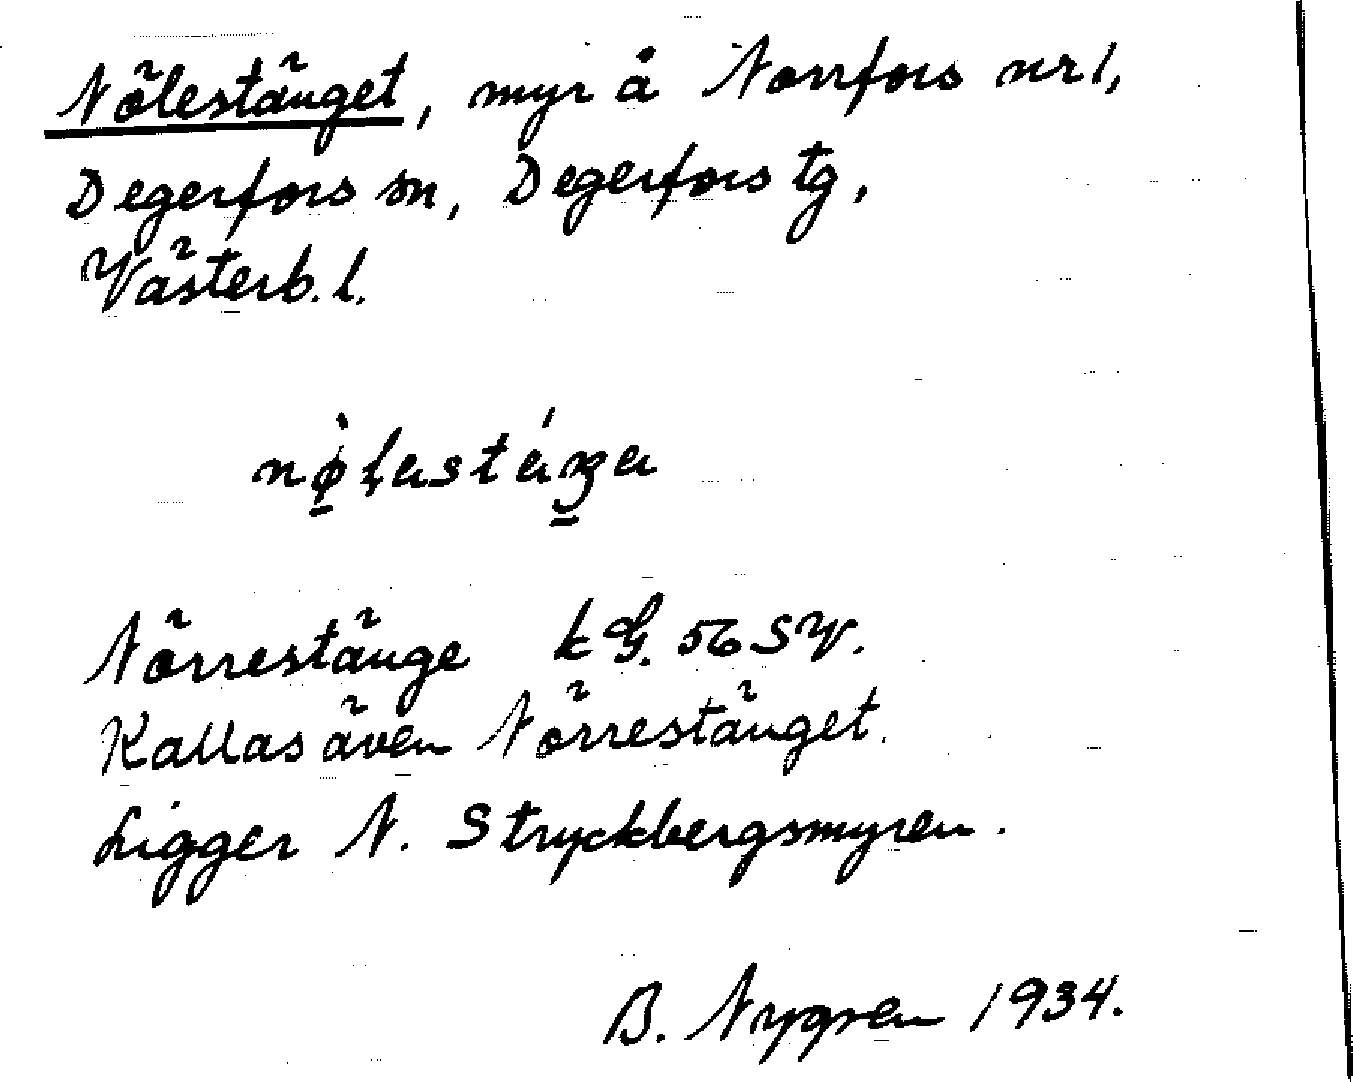 Nölestänget, myr å Norrfors nr 1,
Degerfors sn, Degerfors tg,
Västerb. l.
Nörrestänge kG. 56 SV.
Kallas även Nörrestänget.
Ligger N. Stryckbergsmyren.
B. Nygren 1934.